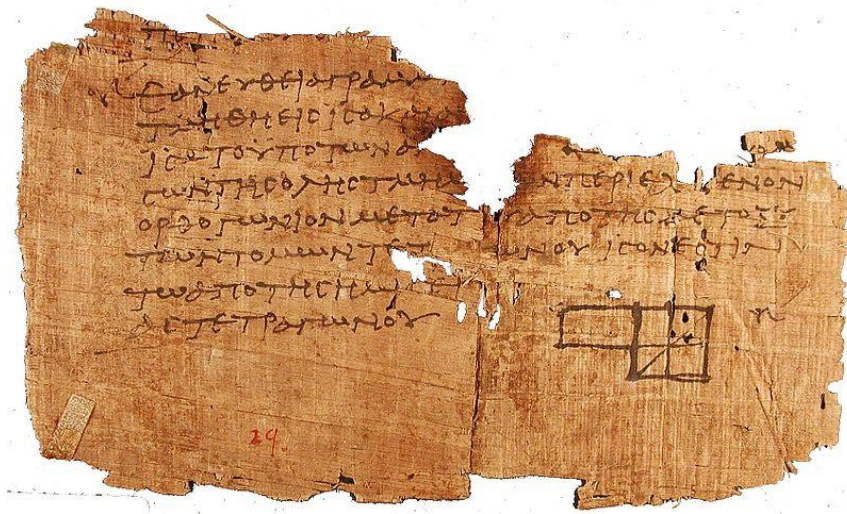 ΕΑΝΕΥΘΕΙΑΓΡΑΜ
ΤΜΗΘΗΕΙϹΙϹΑΚΑΙΑ
ΙϹΑΤΟΥΠΟΤΩΝΑ
ΤΩΝΤΗϹΟΛΗϹΤΜΗΜ ΝΠΕΡΙΕΧ ΜΕΝΟΝ
ΟΡΘΟΓΩΝΙΟΝΜΕΤΟΤ ΑΠΟΤΗϹΜΕΤΟΞΥ
ΤΩΝΤΟΜΩΝΤΕΤ ΩΝΟΥΙϹΟΝΕϹΤΙΝ
ΤΩΑΠΟΤΗϹΗΜΙ
ΑϹΤΕΤΡΑΓΩΝΟΥ
29.